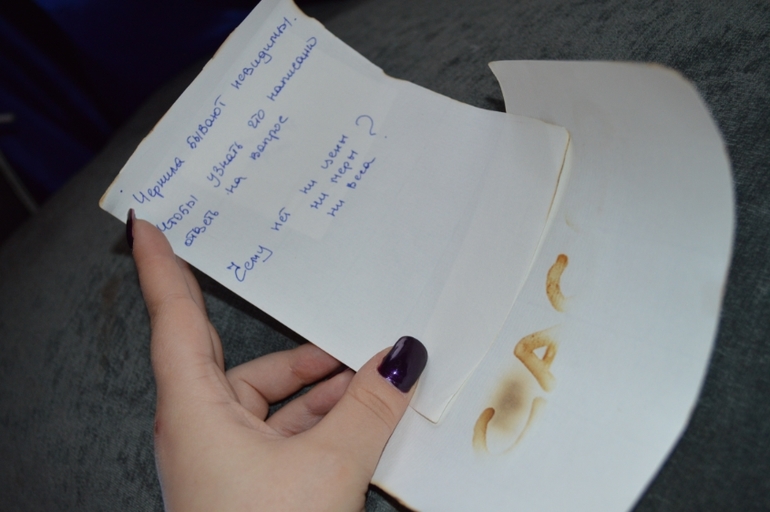 Чернила бывают невидимы.
Чтобы узнать что написано
ответь на вопрос
Чему нет ни цены
ни меры ?
ни веса